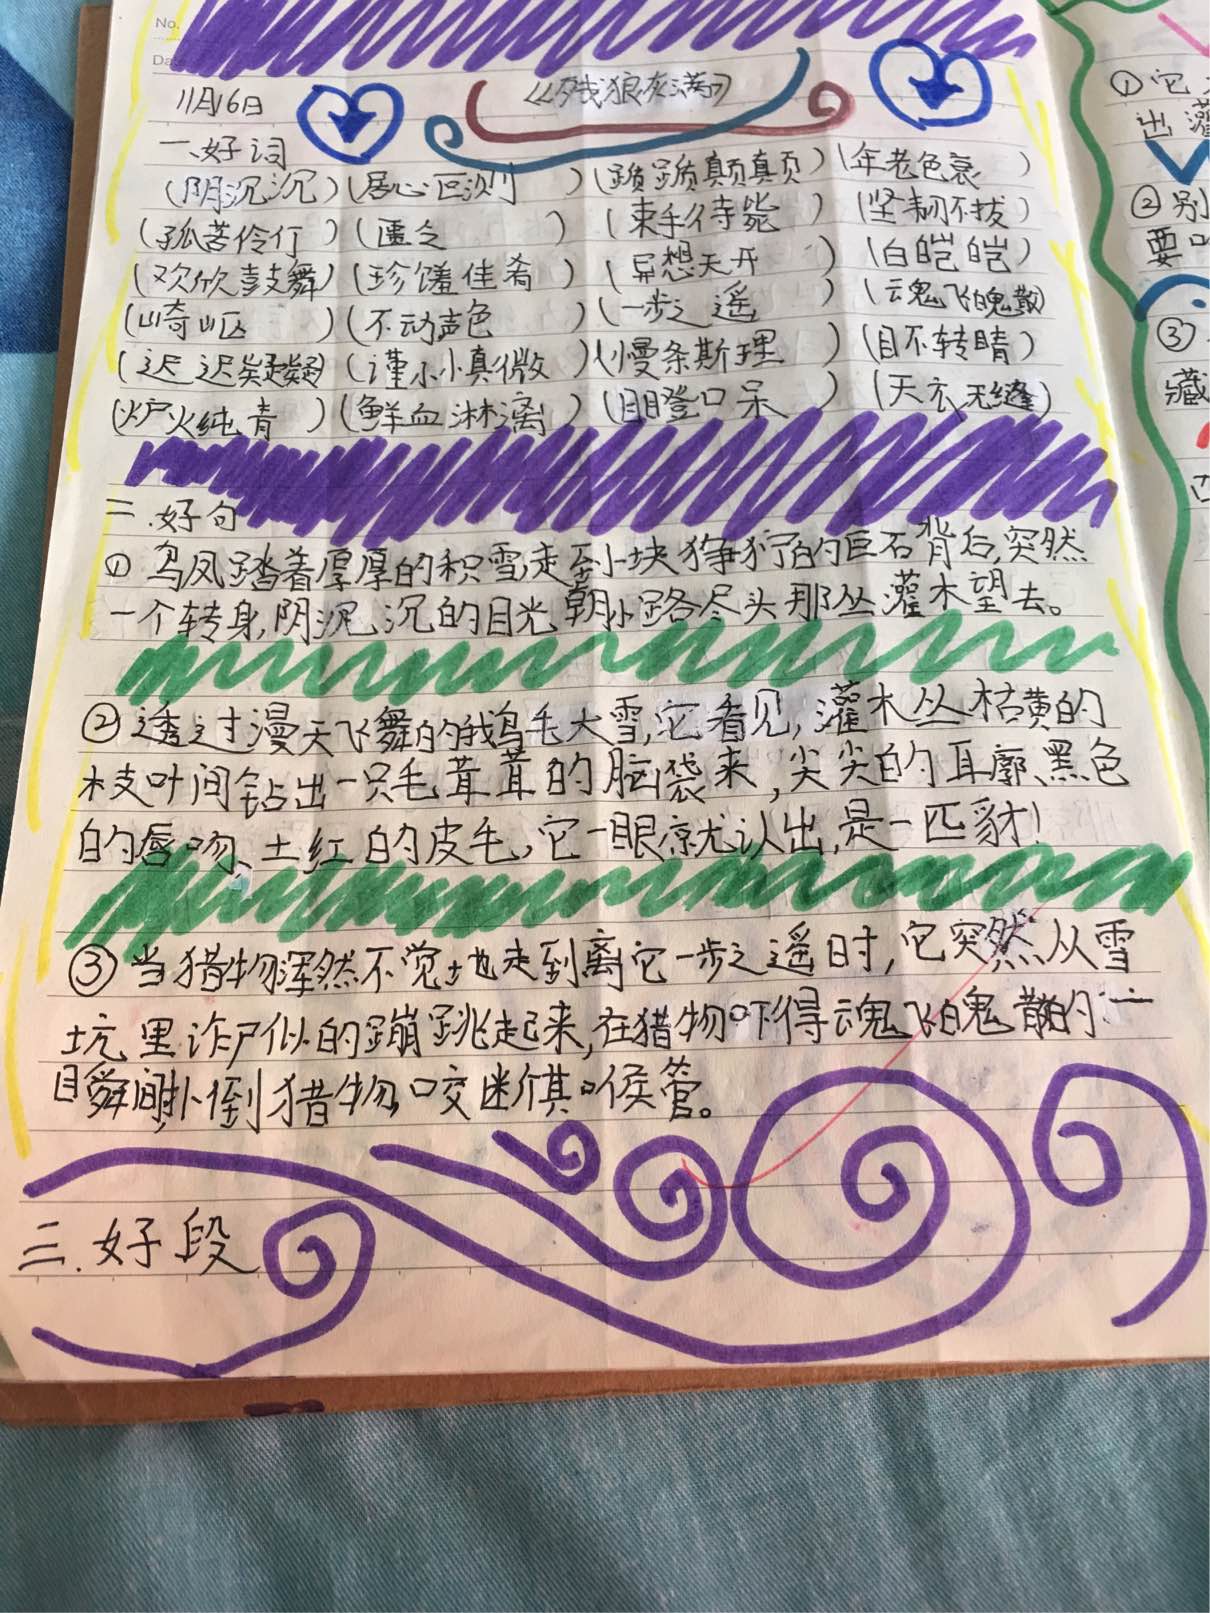 No.
11月16日
《残狼灰满》
一、好词
(阴沉沉)(居心叵测)(踬踬颠颠)(年老色衰)
(孤苦伶仃)(匮乏)(束手待毙)(坚韧不拔)
(欢欣鼓舞)(珍馐佳肴)(异想天开)(白皑皑)
(崎岖)(不动声色)(一步之遥)(魂飞魄散)
(迟迟疑疑)(谨小慎微)(慢条斯理)(目不转睛)
(炉火纯青)(鲜血淋漓)(目瞪口呆)(天衣无缝)
二.好句
①乌凤踏着厚厚的积雪,走到一块狰狞的巨石背后,突然
一个转身,阴沉沉的目光朝小路尽头那丛灌木望去。
②透过漫天飞舞的鹅毛大雪,它看见,灌木丛枯黄的
枝叶间钻出一只毛茸茸的脑袋来,尖尖的耳廓、黑色
的唇吻、土红的皮毛,它一眼就认出,是一匹豺!
③当猎物浑然不觉地走到离它一步之遥时,它突然从雪
坑里诈尸似的蹦跳起来,在猎物吓得魂飞魄散的一
瞬间,扑倒猎物,咬断其喉管。
三.好段
①它
出灌
②别
要
③
藏